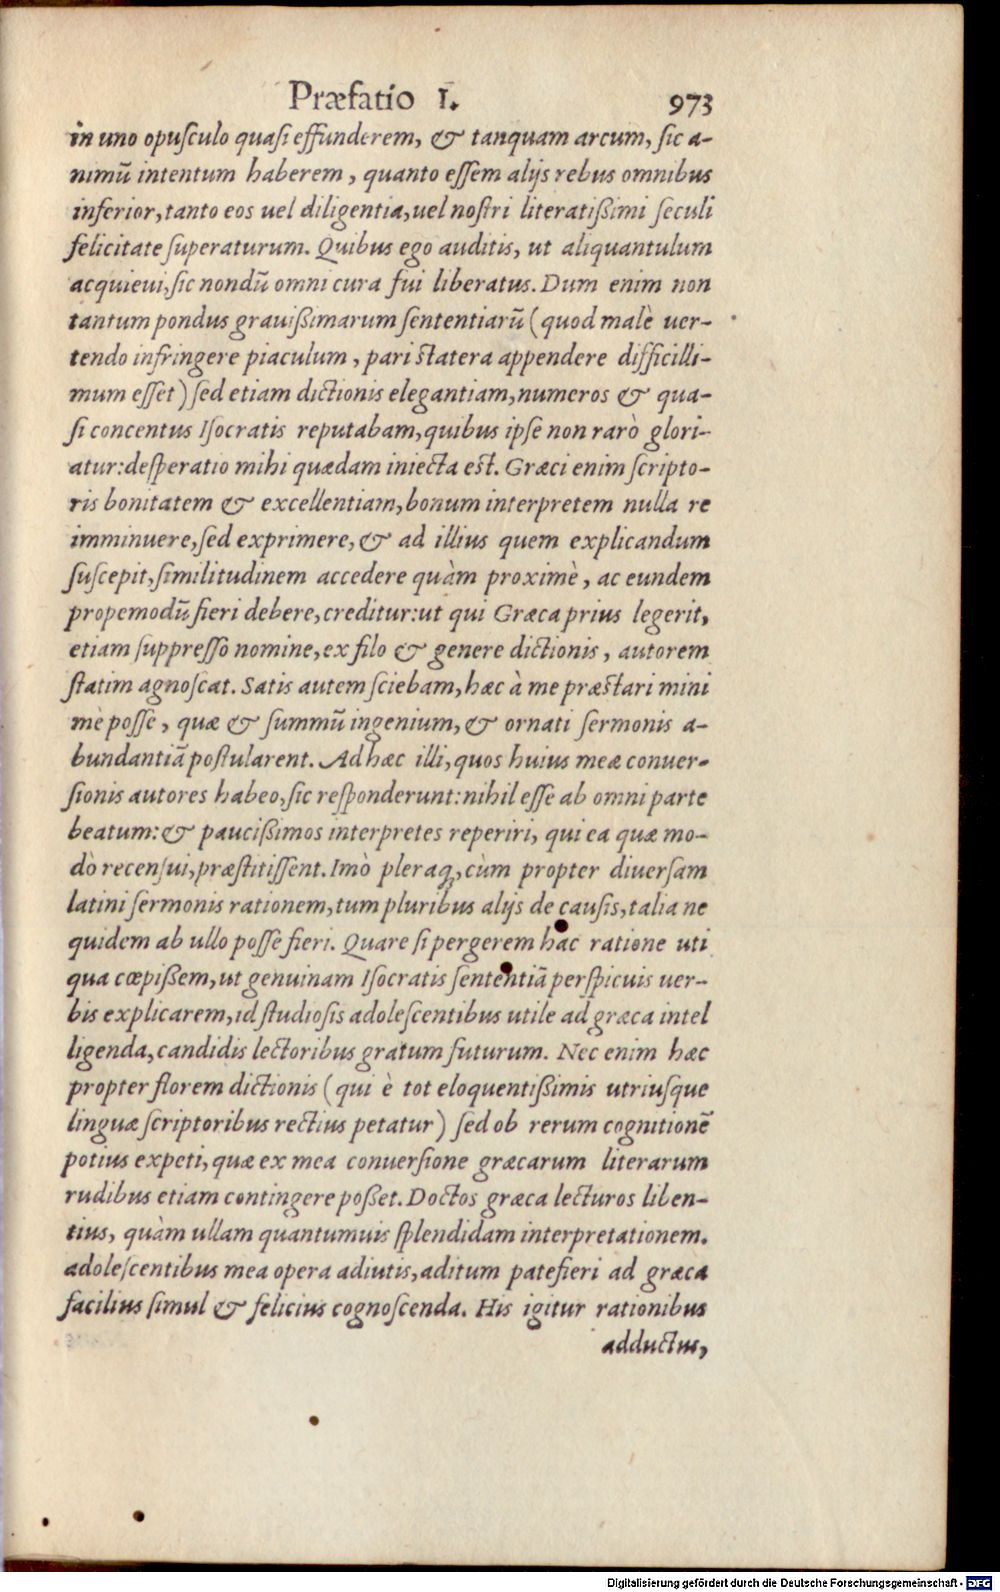 Præfatio I. 973
in uno opusculo quasi effunderem, & tanquam arcum, sic a-
nimū intentum haberem, quanto essem alijs rebus omnibus
inferior, tanto eos uel diligentia, uel nostri literatißimi seculi
felicitate superaturum. Quibus ego auditis, ut aliquantulum
acquieui, sic nondū omni cura fui liberatus. Dum enim non
tantum pondus grauißimarum sententiarū (quod malè uer-
tendo infringere piaculum, pari statera appendere difficilli-
mum esset) sed etiam dictionis elegantiam, numeros & qua-
si concentus Isocratis reputabam, quibus ipse non rarò glori-
atur: desperatio mihi quædam iniecta est. Græci enim scripto-
ris bonitatem & excellentiam, bonum interpretem nulla re
imminuere, sed exprimere, & ad illius quem explicandum
suscepit, similitudinem accedere quàm proximè, ac eundem
propemodū fieri debere, creditur: ut qui Græca prius legerit,
etiam suppresso nomine, ex filo & genere dictionis, autorem
statim agnoscat. Satis autem sciebam, hæc à me præstari mini
mè posse, quæ & summū ingenium, & ornati sermonis a-
bundantiā postularent. Ad hæc illi, quos huius meæ conuer-
sionis autores habeo, sic responderunt: nihil esse ab omni parte
beatum: & paucißimos interpretes reperiri, qui ea quæ mo-
dò recensui, præstitissent. Imò pleraq;, cùm propter diuersam
latini sermonis rationem, tum pluribus alijs de causis, talia ne
quidem ab ullo posse fieri. Quare si pergerem hac ratione uti
qua cœpißem, ut genuinam Isocratis sententiā perspicuis uer-
bis explicarem, id studiosis adolescentibus utile ad græca intel
ligenda, candidis lectoribus gratum futurum. Nec enim hæc
propter florem dictionis (qui è tot eloquentißimis utriusque
linguæ scriptoribus rectius petatur) sed ob rerum cognitionē
potius expeti, quæ ex mea conuersione græcarum literarum
rudibus etiam contingere poßet. Doctos græca lecturos liben-
tius, quàm ullam quantumuis splendidam interpretationem.
adolescentibus mea opera adiutis, aditum patefieri ad græca
facilius simul & felicius cognoscenda. His igitur rationibus
adductus,
Digitalisierung gefördert durch die Deutsche Forschungsgemeinschaft - DFG